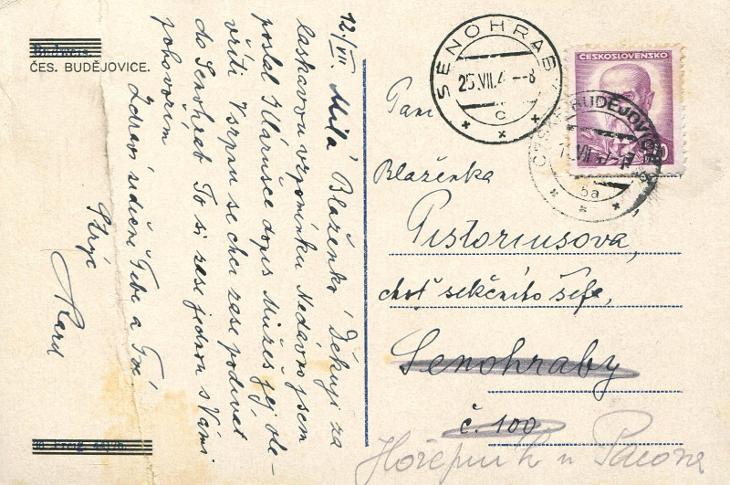 ČES. BUDĚJOVICE.
12./VII. Milá Blaženko! Děkuji za
laskavou vzpomínku. Nedávno jsem
poslal Illarusce dopis. Můžeš jej ote-
vříti. V srpnu se chci zase podívat
do Senohrab. To si zase jednou s Vámi
pohovořím.
Zdraví srdečně Tebe a
Strýc
SENOHRABY
25.VII.4 -8
c
ČESKOSLOVENSKO
ČESKÉ BUDĚJOVICE
5a
Paní
Blaženka
Pistoriusova,
choť sekčního šéfa,
Senohraby
č. 100.
Hořepník u Pacova